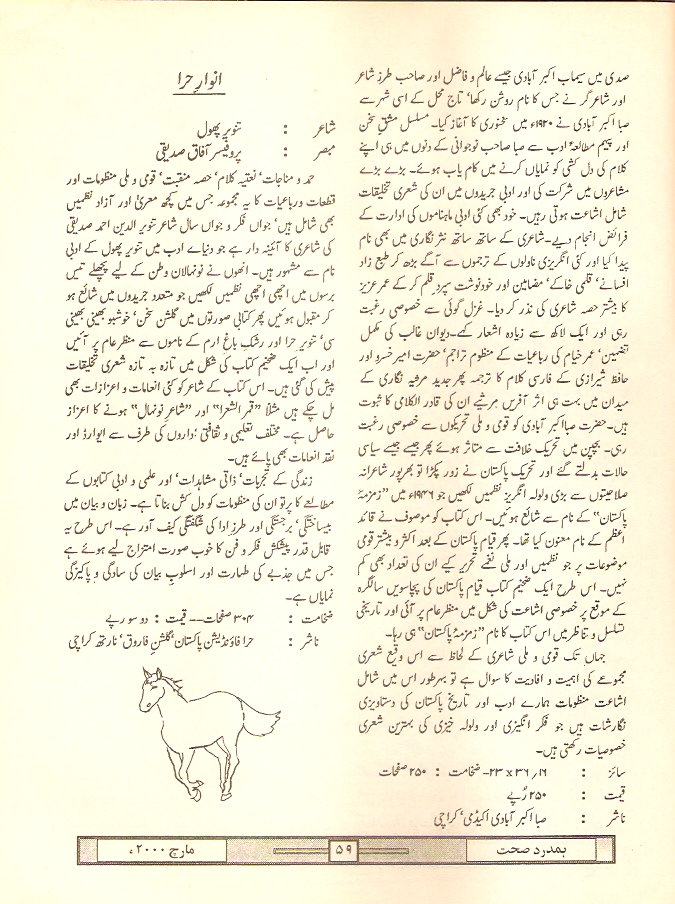 صدی میں سیماب اکبر آبادی جیسے عالم و فاضل اور صاحب طرز شاعر
اور شاعر گر نے جس کا نام روشن رکھا، تاج محل کے اسی شہر سے
صبا اکبر آبادی نے ۱۹۲۰ء میں سخنوری کا آغاز کیا۔ مسلسل مشقِ سخن
اور پیہم مطالعۂ ادب سے صبا صاحب نوجوانی کے دنوں میں ہی اپنے
کلام کی دل کشی کو نمایاں کرنے میں کام یاب ہوئے۔ بڑے بڑے
مشاعروں میں شرکت کی اور ادبی جریدوں میں ان کی شعری تخلیقات
شامل اشاعت ہوتی رہیں۔ خود بھی کئی ادبی ماہناموں کی ادارت کے
فرائض انجام دیے۔ شاعری کے ساتھ ساتھ نثر نگاری میں بھی نام
پیدا کیا اور کئی انگریزی ناولوں کے ترجموں سے آگے بڑھ کر طبع زاد
افسانے، قلمی خاکے، مضامین اور خودنوشت سپردِ قلم کر کے عمر عزیز
کا بیشتر حصہ شاعری کی نذر کر دیا۔ غزل گوئی سے خصوصی رغبت
رہی اور ایک لاکھ سے زیادہ اشعار کہے۔ دیوان غالب کی مکمل
تضمین، عمر خیام کی رباعیات کے منظوم تراجم، حضرت امیر خسرو اور
حافظ شیرازی کے فارسی کلام کا ترجمہ پھر جدید مرثیہ نگاری کے
میدان میں بہت ہی اثر آفریں مرثیے ان کی قادر الکلامی کا ثبوت
ہیں۔ حضرت صبا اکبر آبادی کو قومی و ملی تحریکوں سے خصوصی رغبت
رہی۔ بچپن میں تحریک خلافت سے متاثر ہوئے پھر جیسے جیسے سیاسی
حالات بدلتے گئے اور تحریک پاکستان نے زور پکڑا تو بھرپور شاعرانہ
صلاحیتوں سے بڑی ولولہ انگریز نظمیں لکھیں جو ۱۹۴۶ء میں "زمزمۂ
پاکستان" کے نام سے شائع ہوئیں۔ اس کتاب کو موصوف نے قائد
اعظم کے نام معنون کیا تھا۔ پھر قیام پاکستان کے بعد اکثر و بیشتر قومی
موضوعات پر جو نظمیں اور ملی نغمے تحریر کیے ان کی تعداد بھی کم
نہیں۔ اس طرح ایک ضخیم کتاب قیام پاکستان کی پچاسویں سالگرہ
کے موقع پر خصوصی اشاعت کی شکل میں منظر عام پر آئی اور تاریخی
تسلسل و تناظر میں اس کتاب کا نام "زمزمۂ پاکستان" ہی رہا۔
جہاں تک قومی و ملی شاعری کے لحاظ سے اس وقیع شعری
مجموعے کی اہمیت و افادیت کا سوال ہے تو بہرطور اس میں شامل
اشاعت منظومات ہمارے ادب اور تاریخ پاکستان کی دستاویزی
نگارشات ہیں جو فکر انگیزی اور ولولہ خیزی کی بہترین شعری
خصوصیات رکھتی ہیں۔
سائز : ۱۶/ ۳۶x۲۳- ضخامت : ۲۵۰ صفحات
قیمت : ۲۵۰ روپے
ناشر : صبا اکبر آبادی اکیڈمی، کراچی
انوارِ حرا
شاعر : تنویر پھول
مبصر : پروفیسر آفاق صدیقی
حمد و مناجات، نعتیہ کلام، حصہ منقبت، قومی و ملی منظومات اور
قطعات و رباعیات کا یہ مجموعہ جس میں کچھ معریٰ اور آزاد نظمیں
بھی شامل ہیں، جواں فکر و جواں سال شاعر تنویر الدین احمد صدیقی
کی شاعری کا آئینہ دار ہے جو دنیاے ادب میں تنویر پھول کے ادبی
نام سے مشہور ہیں۔ انھوں نے نونہالان وطن کے لیے پچھلے تیس
برسوں میں اچھی اچھی نظمیں لکھیں جو متعدد جریدوں میں شائع ہو
کر مقبول ہوئیں پھر کتابی صورتوں میں گلشن سخن، خوشبو بھینی بھینی
سی، تنویر حرا اور رشکِ باغ ارم کے ناموں سے منظر عام پر آئیں
اور اب ایک ضخیم کتاب کی شکل میں تازہ بہ تازہ شعری تخلیقات
پیش کی گئی ہیں۔ اس کتاب کے شاعر کو کئی انعامات و اعزازات بھی
مل چکے ہیں مثلاً "قمر الشعرا" اور "شاعر نونہال" ہونے کا اعزاز
حاصل ہے۔ مختلف تعلیمی و ثقافتی اداروں کی طرف سے ایوارڈ اور
نقد انعامات بھی پائے ہیں۔
زندگی کے تجربات، ذاتی مشاہدات، اور علمی و ادبی کتابوں کے
مطالعے کا پرتو ان کی منظومات کو دل کش بناتا ہے۔ زبان و بیان میں
بیساختگی، برجستگی اور طرز ادا کی شگفتگی کیف آور ہے۔ اس طرح یہ
قابل قدر پیشکش فکر و فن کا خوب صورت امتزاج لیے ہوئے ہے
جس میں جذبے کی طہارت اور اسلوب بیان کی سادگی و پاکیزگی
نمایاں ہے۔
ضخامت : ۳۰۴ صفحات-- قیمت : دو سو روپے
ناشر : حرا فاؤنڈیشن پاکستان، گلشن فاروق، نارتھ کراچی
ہمدرد صحت
۵۹
مارچ ۲۰۰۰ء